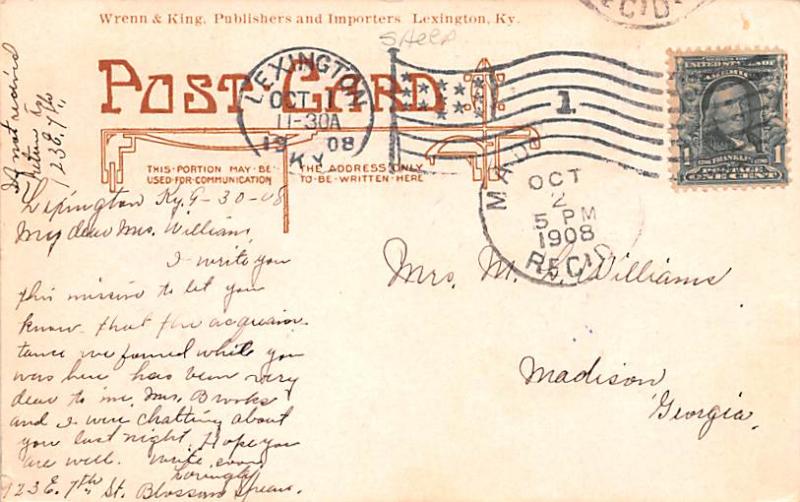 Wrenn & King, Publishers and Importers Lexington, Ky.
REC'D
POST CARD
LEXINGTON
OCT 1
11-30A
1908
KY.
1
UNITED STATES OF AMERICA
FRANKLIN
1 POSTAGE 1
ONE CENT
If not received
return to
123 E. 7th,
THIS PORTION MAY BE
USED FOR COMMUNICATION
THE ADDRESS ONLY
TO BE WRITTEN HERE
MAD
OCT
2
5 PM
1908
REC'D
Lexington Ky. 9-30-08
My dear Mrs. Williams,
I write you
this missive to let you
know that the acquain-
tance we formed while you
were here has been very
dear to me. Mrs. Brooks
and I were chatting about
you last night. Hope you
are well. Write soon.
Lovingly
123 E. 7th St. Blossom Spears.
Mrs. M. L. Williams
Madison,
Georgia.